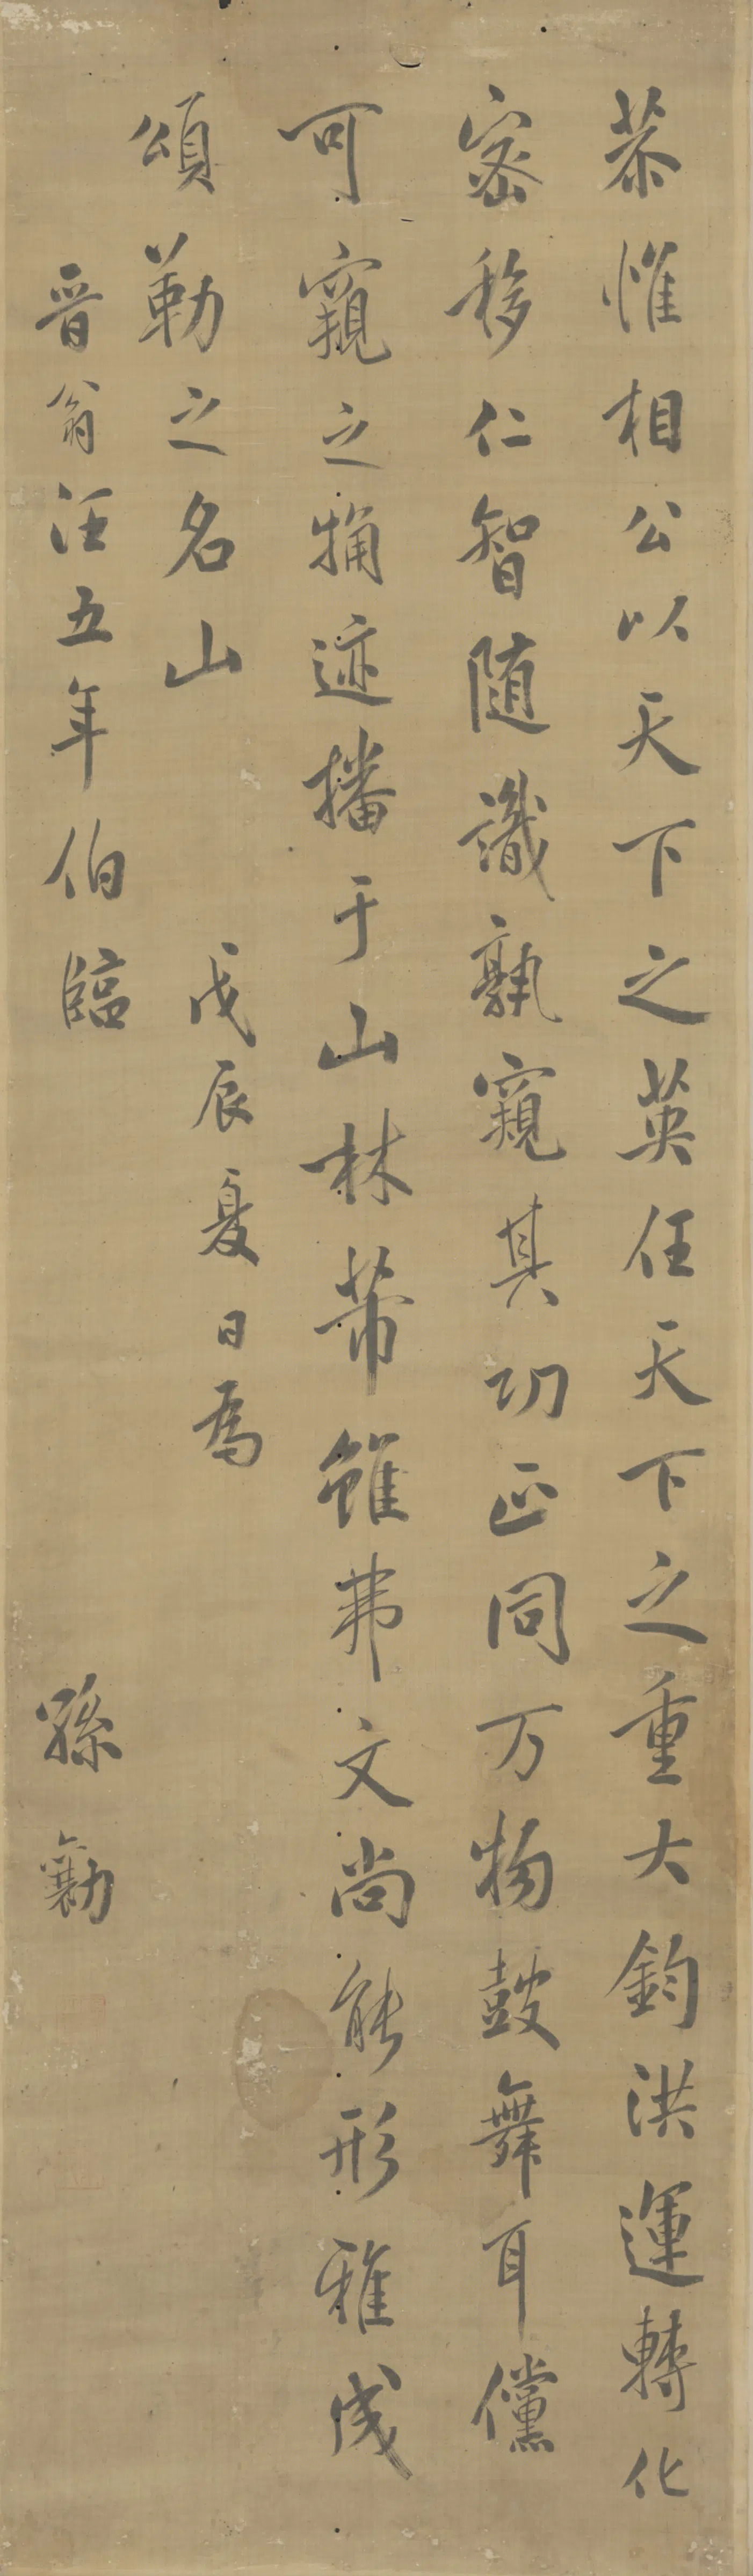 恭惟相公以天下之英任天下之重大鈞洪運轉化
密移仁智随識孰窺其功正同万物鼓舞耳儻
可窺之粗迹播于山林芾雖弗文尚能形雅成
頌勒之名山 戊辰夏日為
晋翁汪五年伯臨 孫勷